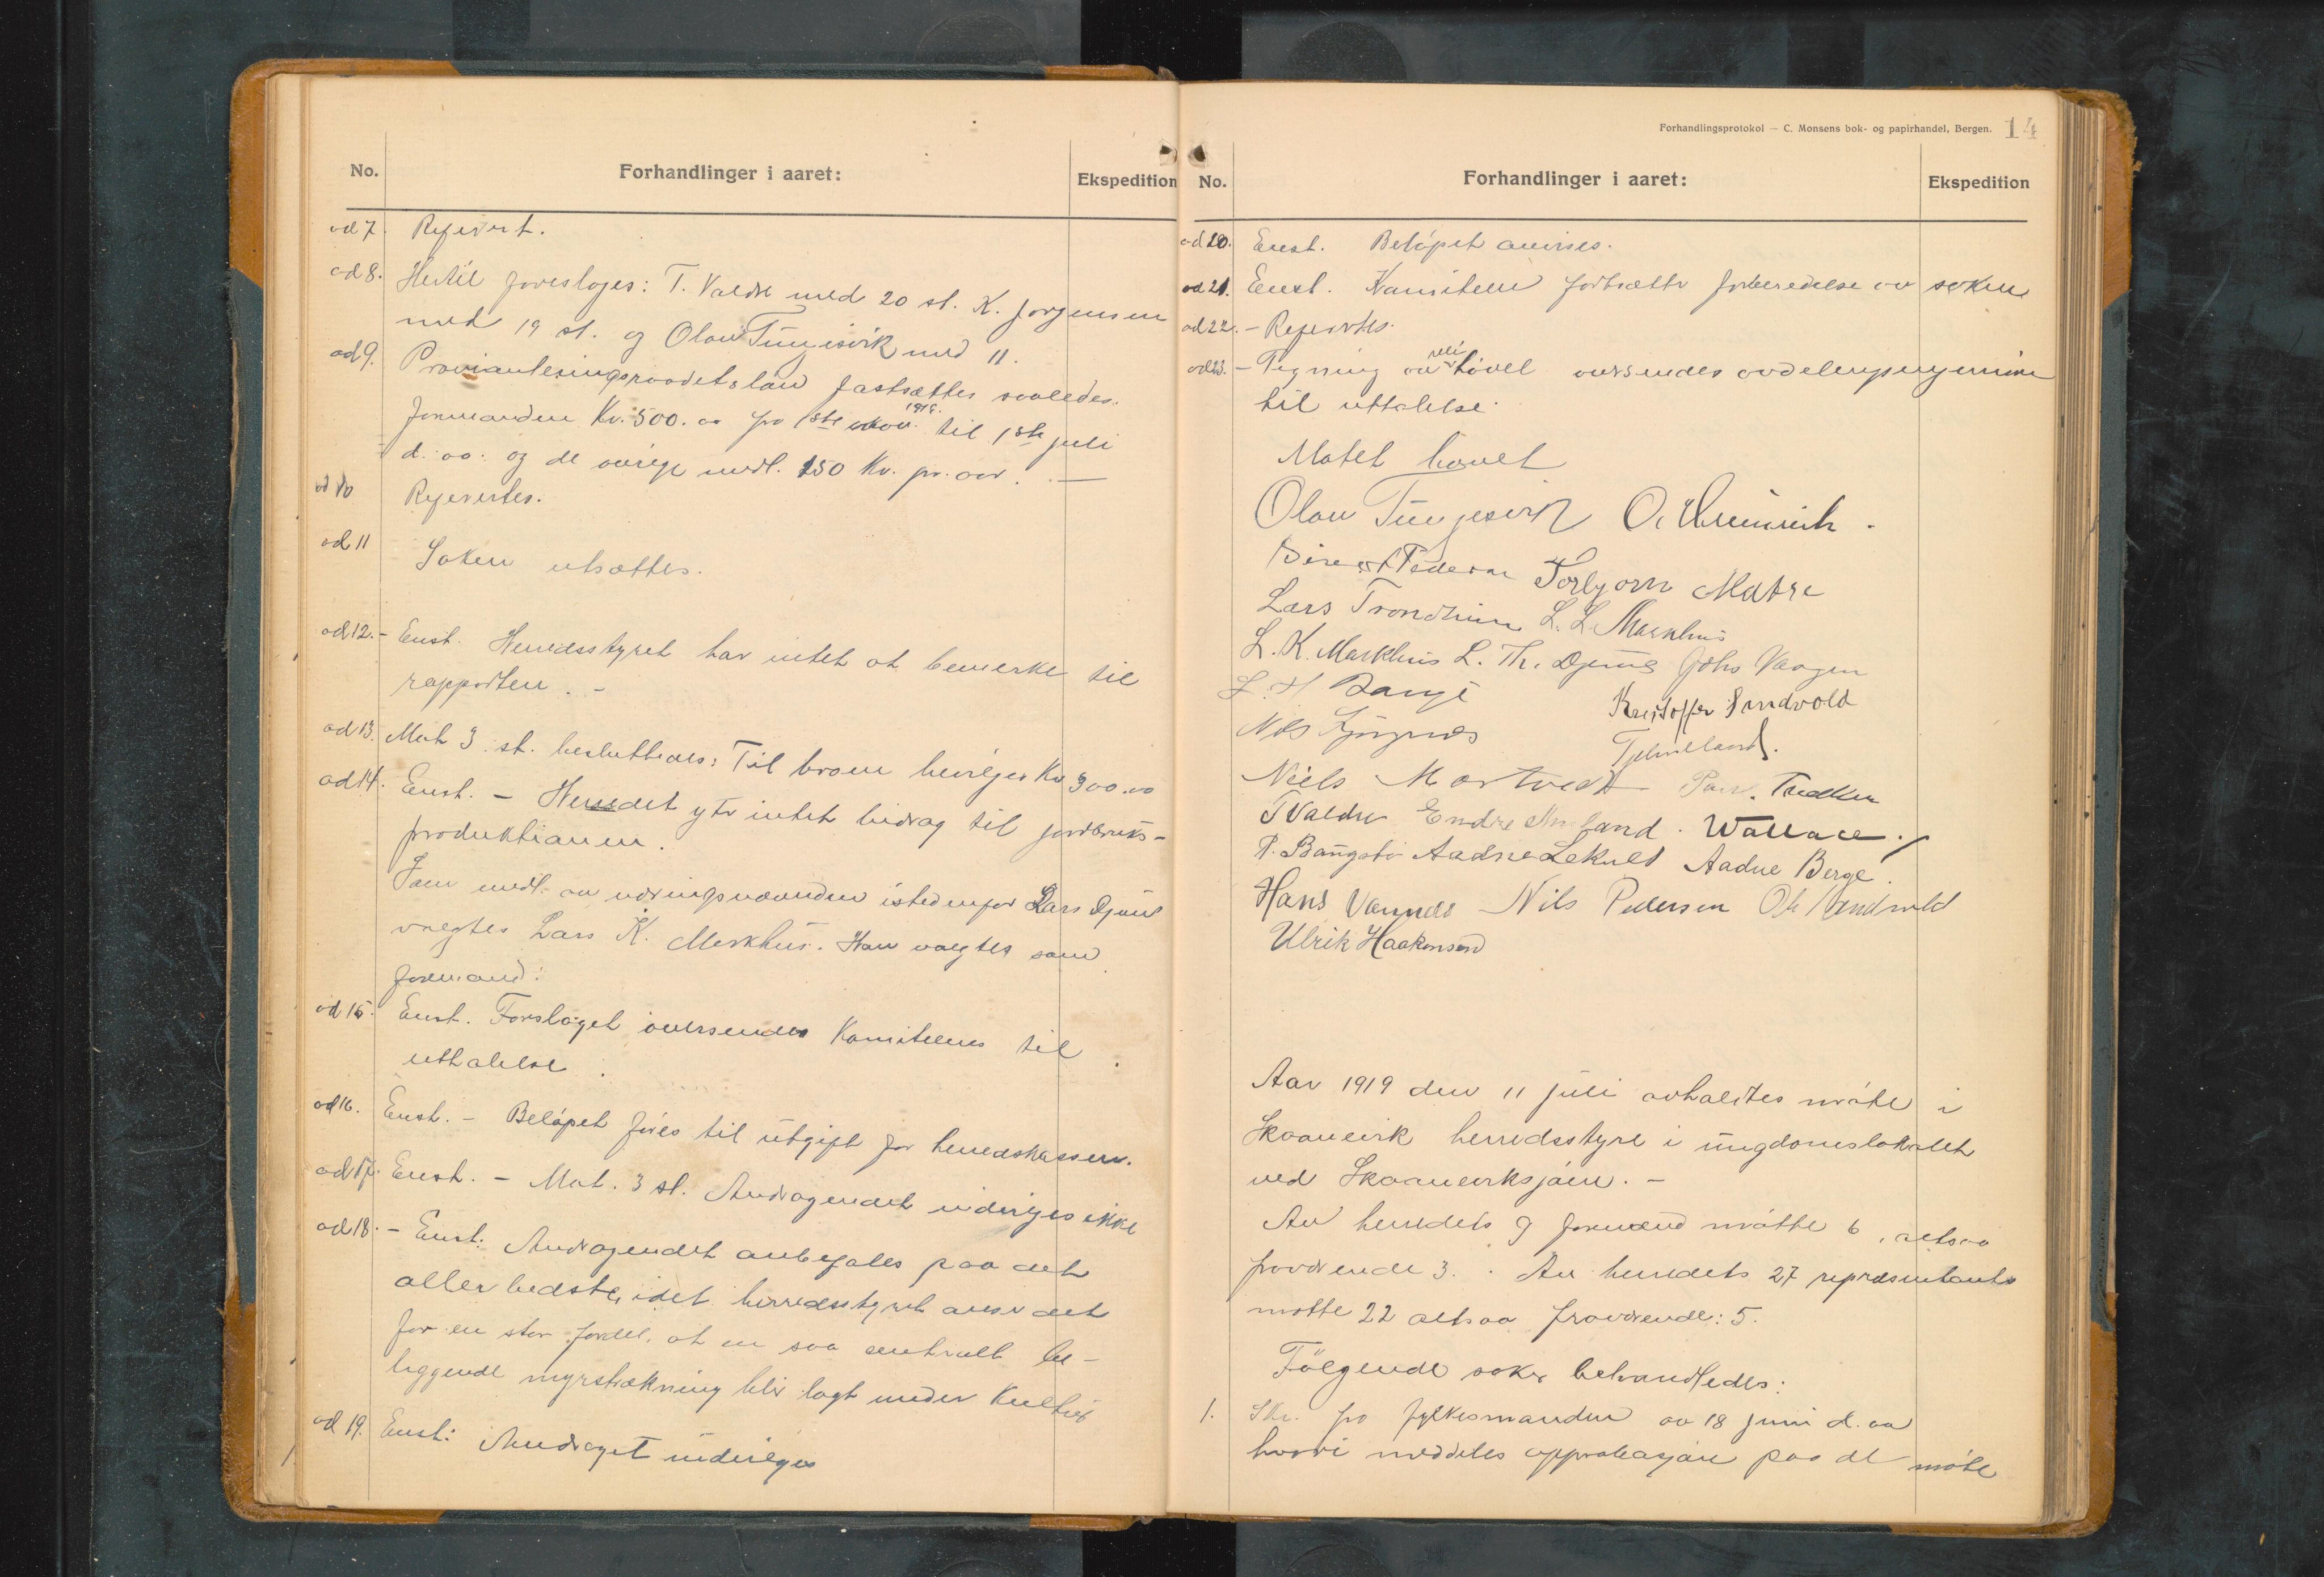 No. Forhandlinger i aaret: Ekspedition
ad 7. Referert.
ad 8. Hertil foresloges: T. Valdre med 20 st. K. Jørgensen
med 19 st. og Olav Tungesvik med 11.
ad 9. Provianteringsraadets løn fastsættes saaledes.
formanden Kr. 500.00 fra 1ste 1918. til 1ste juli
d. aa. og de øvrige medl. 150 Kr. pr. aar. —
ad 10 Refereertes.
ad 11 Saken utsættes.
ad 12. - Enst. Herredsstyret har intet at bemerke til
rapporten. -
ad 13. Mot 3 st. besluttedes: Til broen bevilges Kr 300.00
ad 14. Enst. - Herredet yter intet bidrag til jordbruks-
produktionen.
Som medl. av nævnden istedenfor Lars Djuve
valgtes Lars K. Markhus. Han valgtes som
formand.
ad 15. Enst. Forslaget oversendes Komiteens til
uttalelse.
ad 16. Enst. - Beløpet føres til utgift for herredskassen.
ad 17. Enst. - Mot. 3 st. Andragendet indvilges ikke
ad 18. - Enst: Andragendet anbefales paa det
allerbedste, idet herredsstyret anser det
for en stor fordel, at en saa centralt be-
liggende myrstrækning blir lagt under Kultur
ad 19. Enst: Andraget indvilges
Forhandlingsprotokol — C. Monsens bok- og papirhandel, Bergen. 14
No. Forhandlinger i aaret: Ekspedition
ad 20. Enst. Beløpet anvises.
ad 21. Enst. Komiteen fortsætter forberedelse av saken
ad 22. - Refereertes.
ad 23. - Tegning av tavel oversendes avdelingsingeniøren
til uttalelse.
Møtet hævet
Olav Tungesvik O.
Torbjørn Matre
Lars Trondheim L. L. Markhus
L. K. Markhus L. Th. Djuve Johs Vaagen
L. H Bauge
Kristoffer Sandvold
Nils
Tjelmeland.
Niels Mortveit
T Valdre Endre Wallace.
P. Aadne Lekvelt Aadne Berge.
Hans Vannes Nils Pedersen Ole Sandvold
Ulrik Haakonsen
Aar 1919 den 11 juli avholdtes møte i
Skaanevik herredsstyre i ungdomslokalet
ved Skaaneviksjøen. -
Av herredets 9 formænd møtte 6, altsaa
fraværende 3. Av herredets 27 repræsentanter
møtte 22 altsaa fraværende: 5.
Følgende saker behandledes:
1. Skr. fra fylkesmanden av 18 juni d. aa
hvori meddeles approbasjon paa det møte